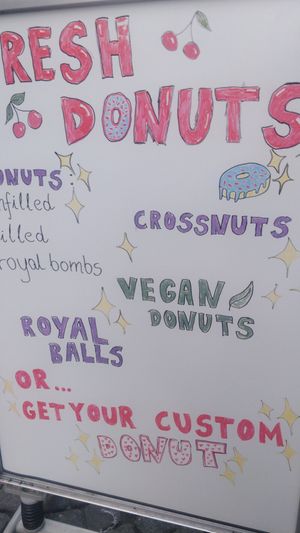 RESH
DONUTS
ONUTS:
nfilled
illed
royal bombs
CROSSNUTS
VEGAN
DONUTS
ROYAL
BALLS
OR...
GET YOUR CUSTOM
DONUT